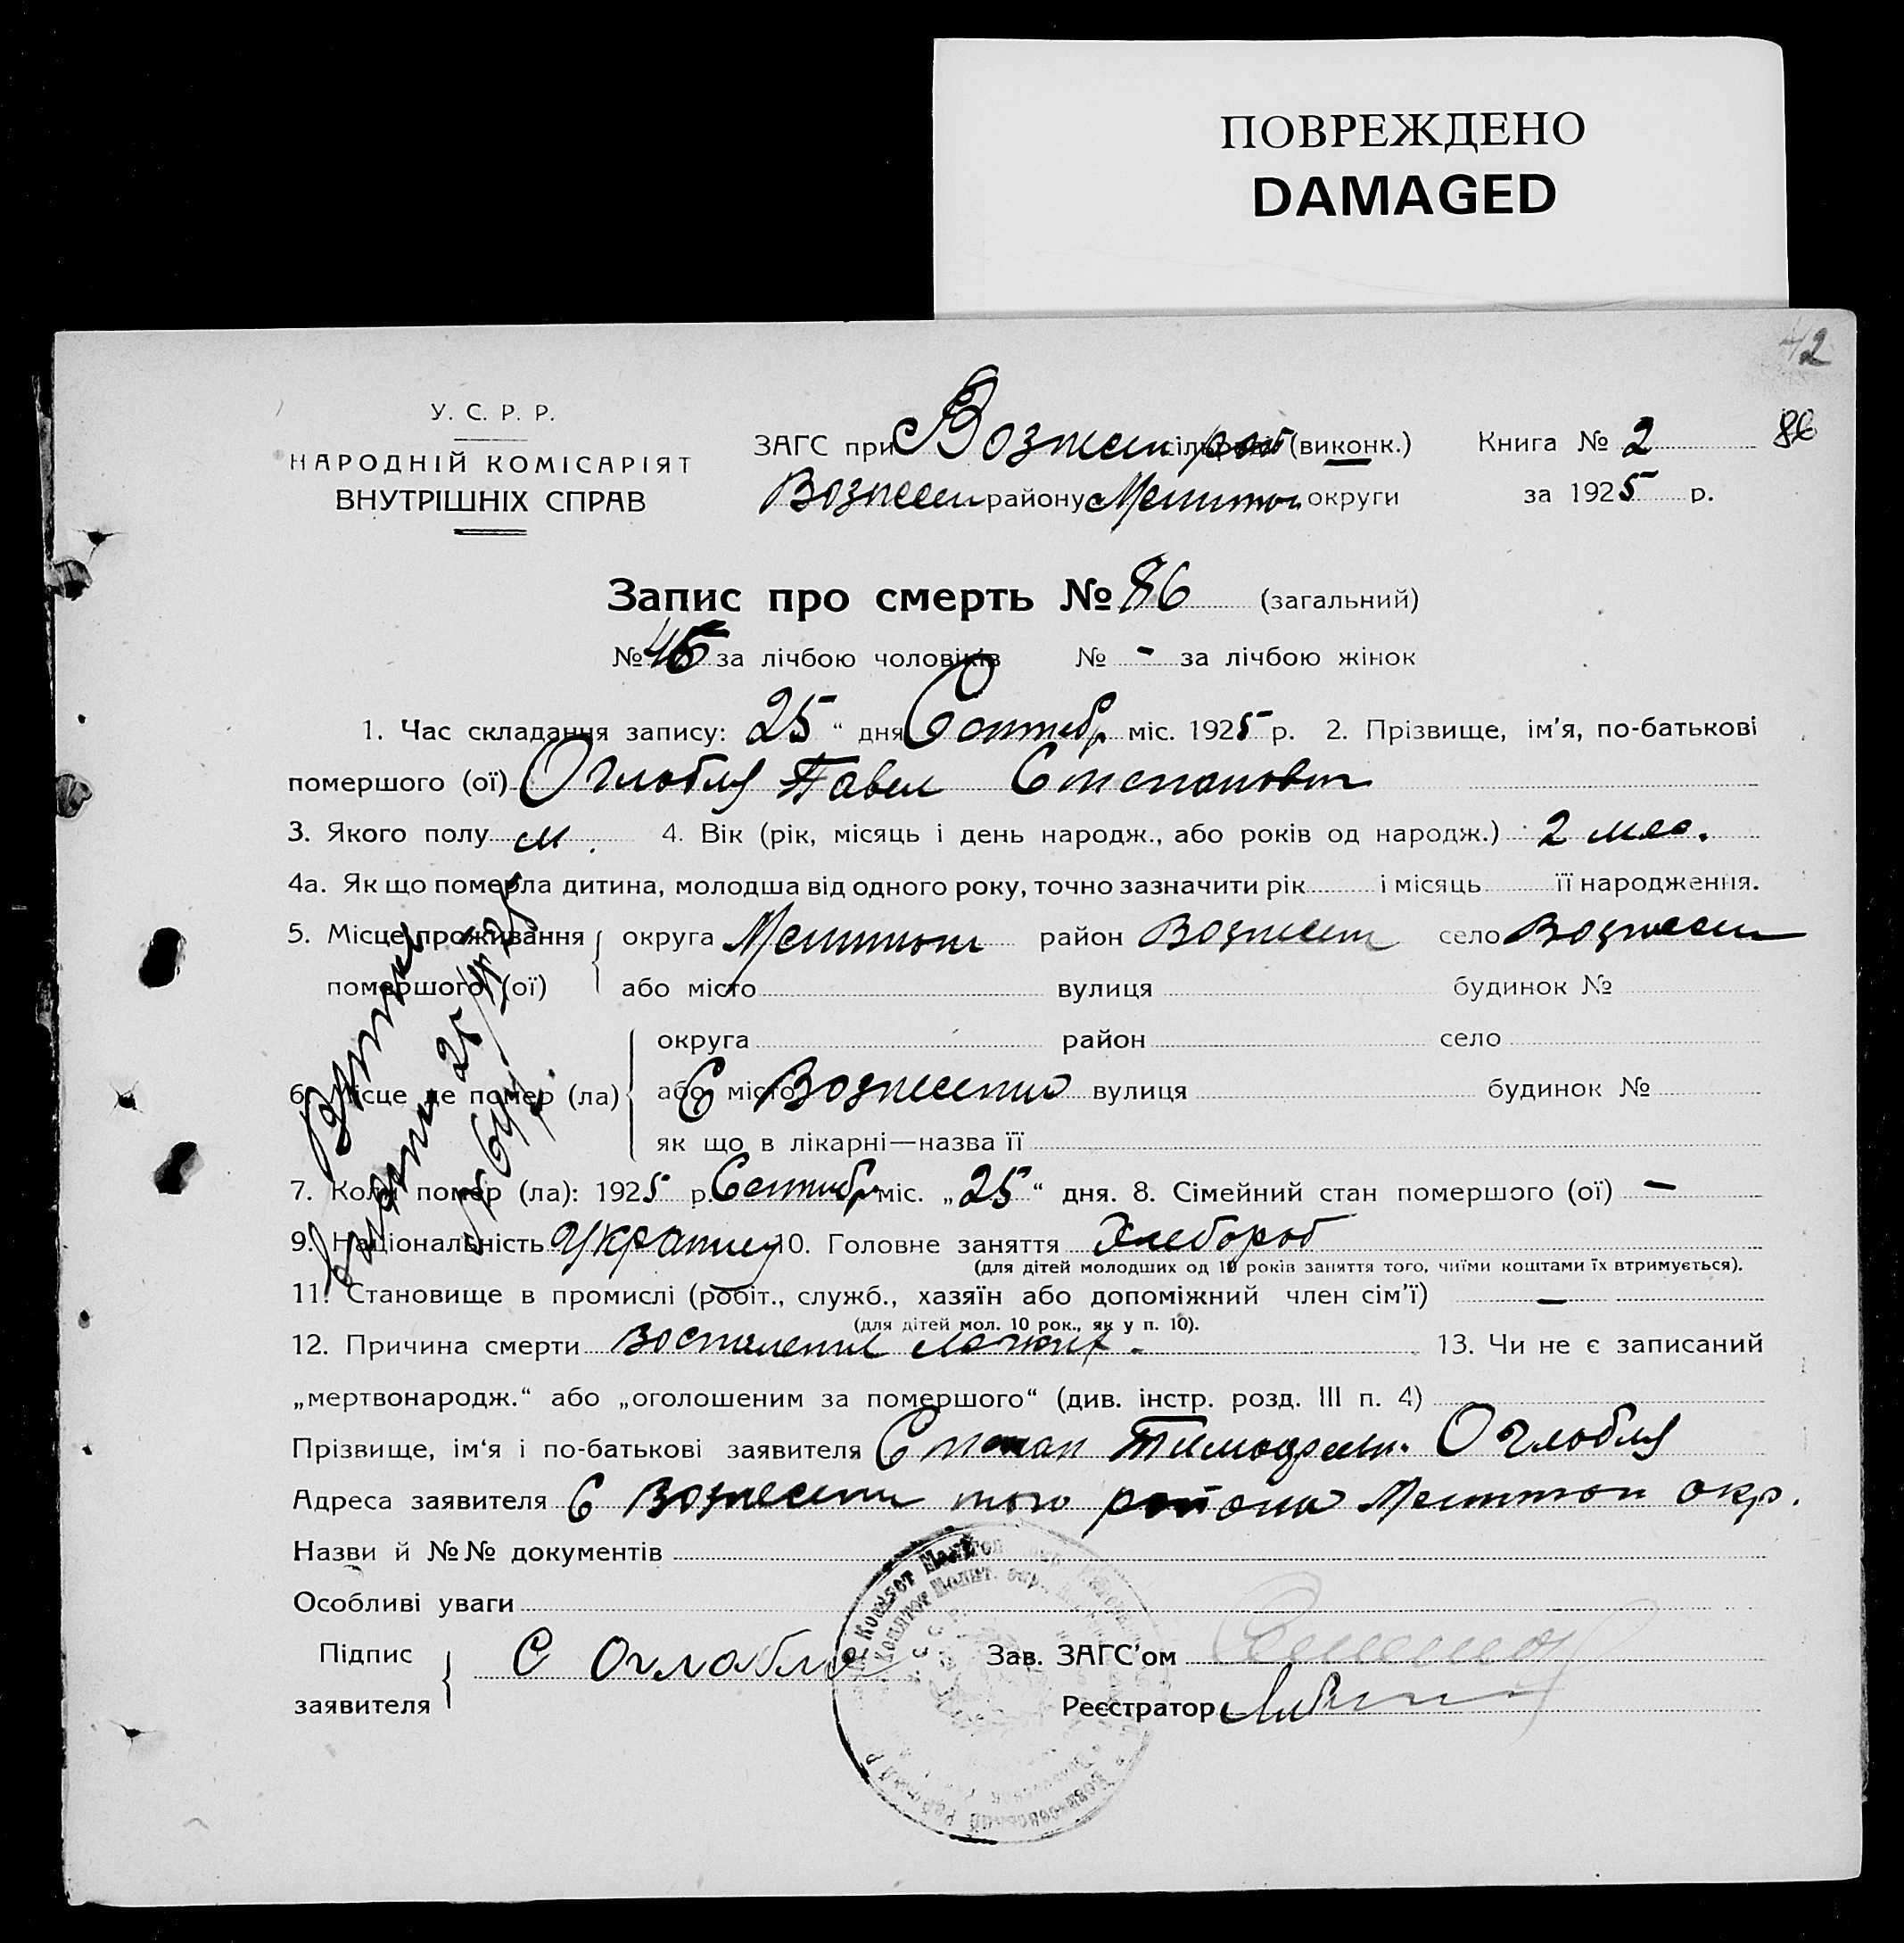 ПОВРЕЖДЕНО
DAMAGED
42
У. С. Р. Р.
НАРОДНІЙ КОМІСАРІЯТ
ВНУТРІШНІХ СПРАВ
ЗАГС при Вознесен рай (виконк.) Книга № 2 86
Вознесен району Мелитоп округи за 1925 р.
Запис про смерть № 86 (загальний)
№ 45 за лічбою чоловіків № - за лічбою жінок
1. Час складання запису: 25 “ дня Сентябр міс. 1925 р. 2. Прізвище, ім’я, по-батькові
помершого (ої) Оглобля Павел Степанович
3. Якого полу м. 4. Вік (рік, місяць і день народж., або років од народж.) 2 мес.
4а. Як що померла дитина, молодша від одного року, точно зазначити рік і місяць її народження.
5. Місце проживання округа Мелитоп район Вознесен село Вознесен
помершого (ої) або місто вулиця будинок №
округа район село
6. Місце де помер (ла) або місто С Вознесенка вулиця будинок №
як що в лікарні—назва її
7. Коли помер (ла): 1925 р. Сентябр міс. „25“ дня. 8. Сімейний стан помершого (ої) —
9. Національність Украинец 10. Головне заняття Хлебороб
(для дітей молодших од 10 років заняття того, чиїми коштами їх втримується).
11. Становище в промислі (робіт., служб., хазяїн або допоміжний член сім’ї) —
(для дітей мол. 10 рок., як у п. 10).
12. Причина смерти Воспаление легких. 13. Чи не є записаний
„мертвонародж.“ або „оголошеним за помершого“ (див. інстр. розд. III п. 4)
Прізвище, ім‘я і по-батькові заявителя Степан Тимофеев. Оглобля
Адреса заявителя С Вознесен того района Мелитоп окр.
Назви й №№ документів
Особливі уваги
Підпис
заявителя С Оглабля
Зав. ЗАГС’ом
Реєстратор